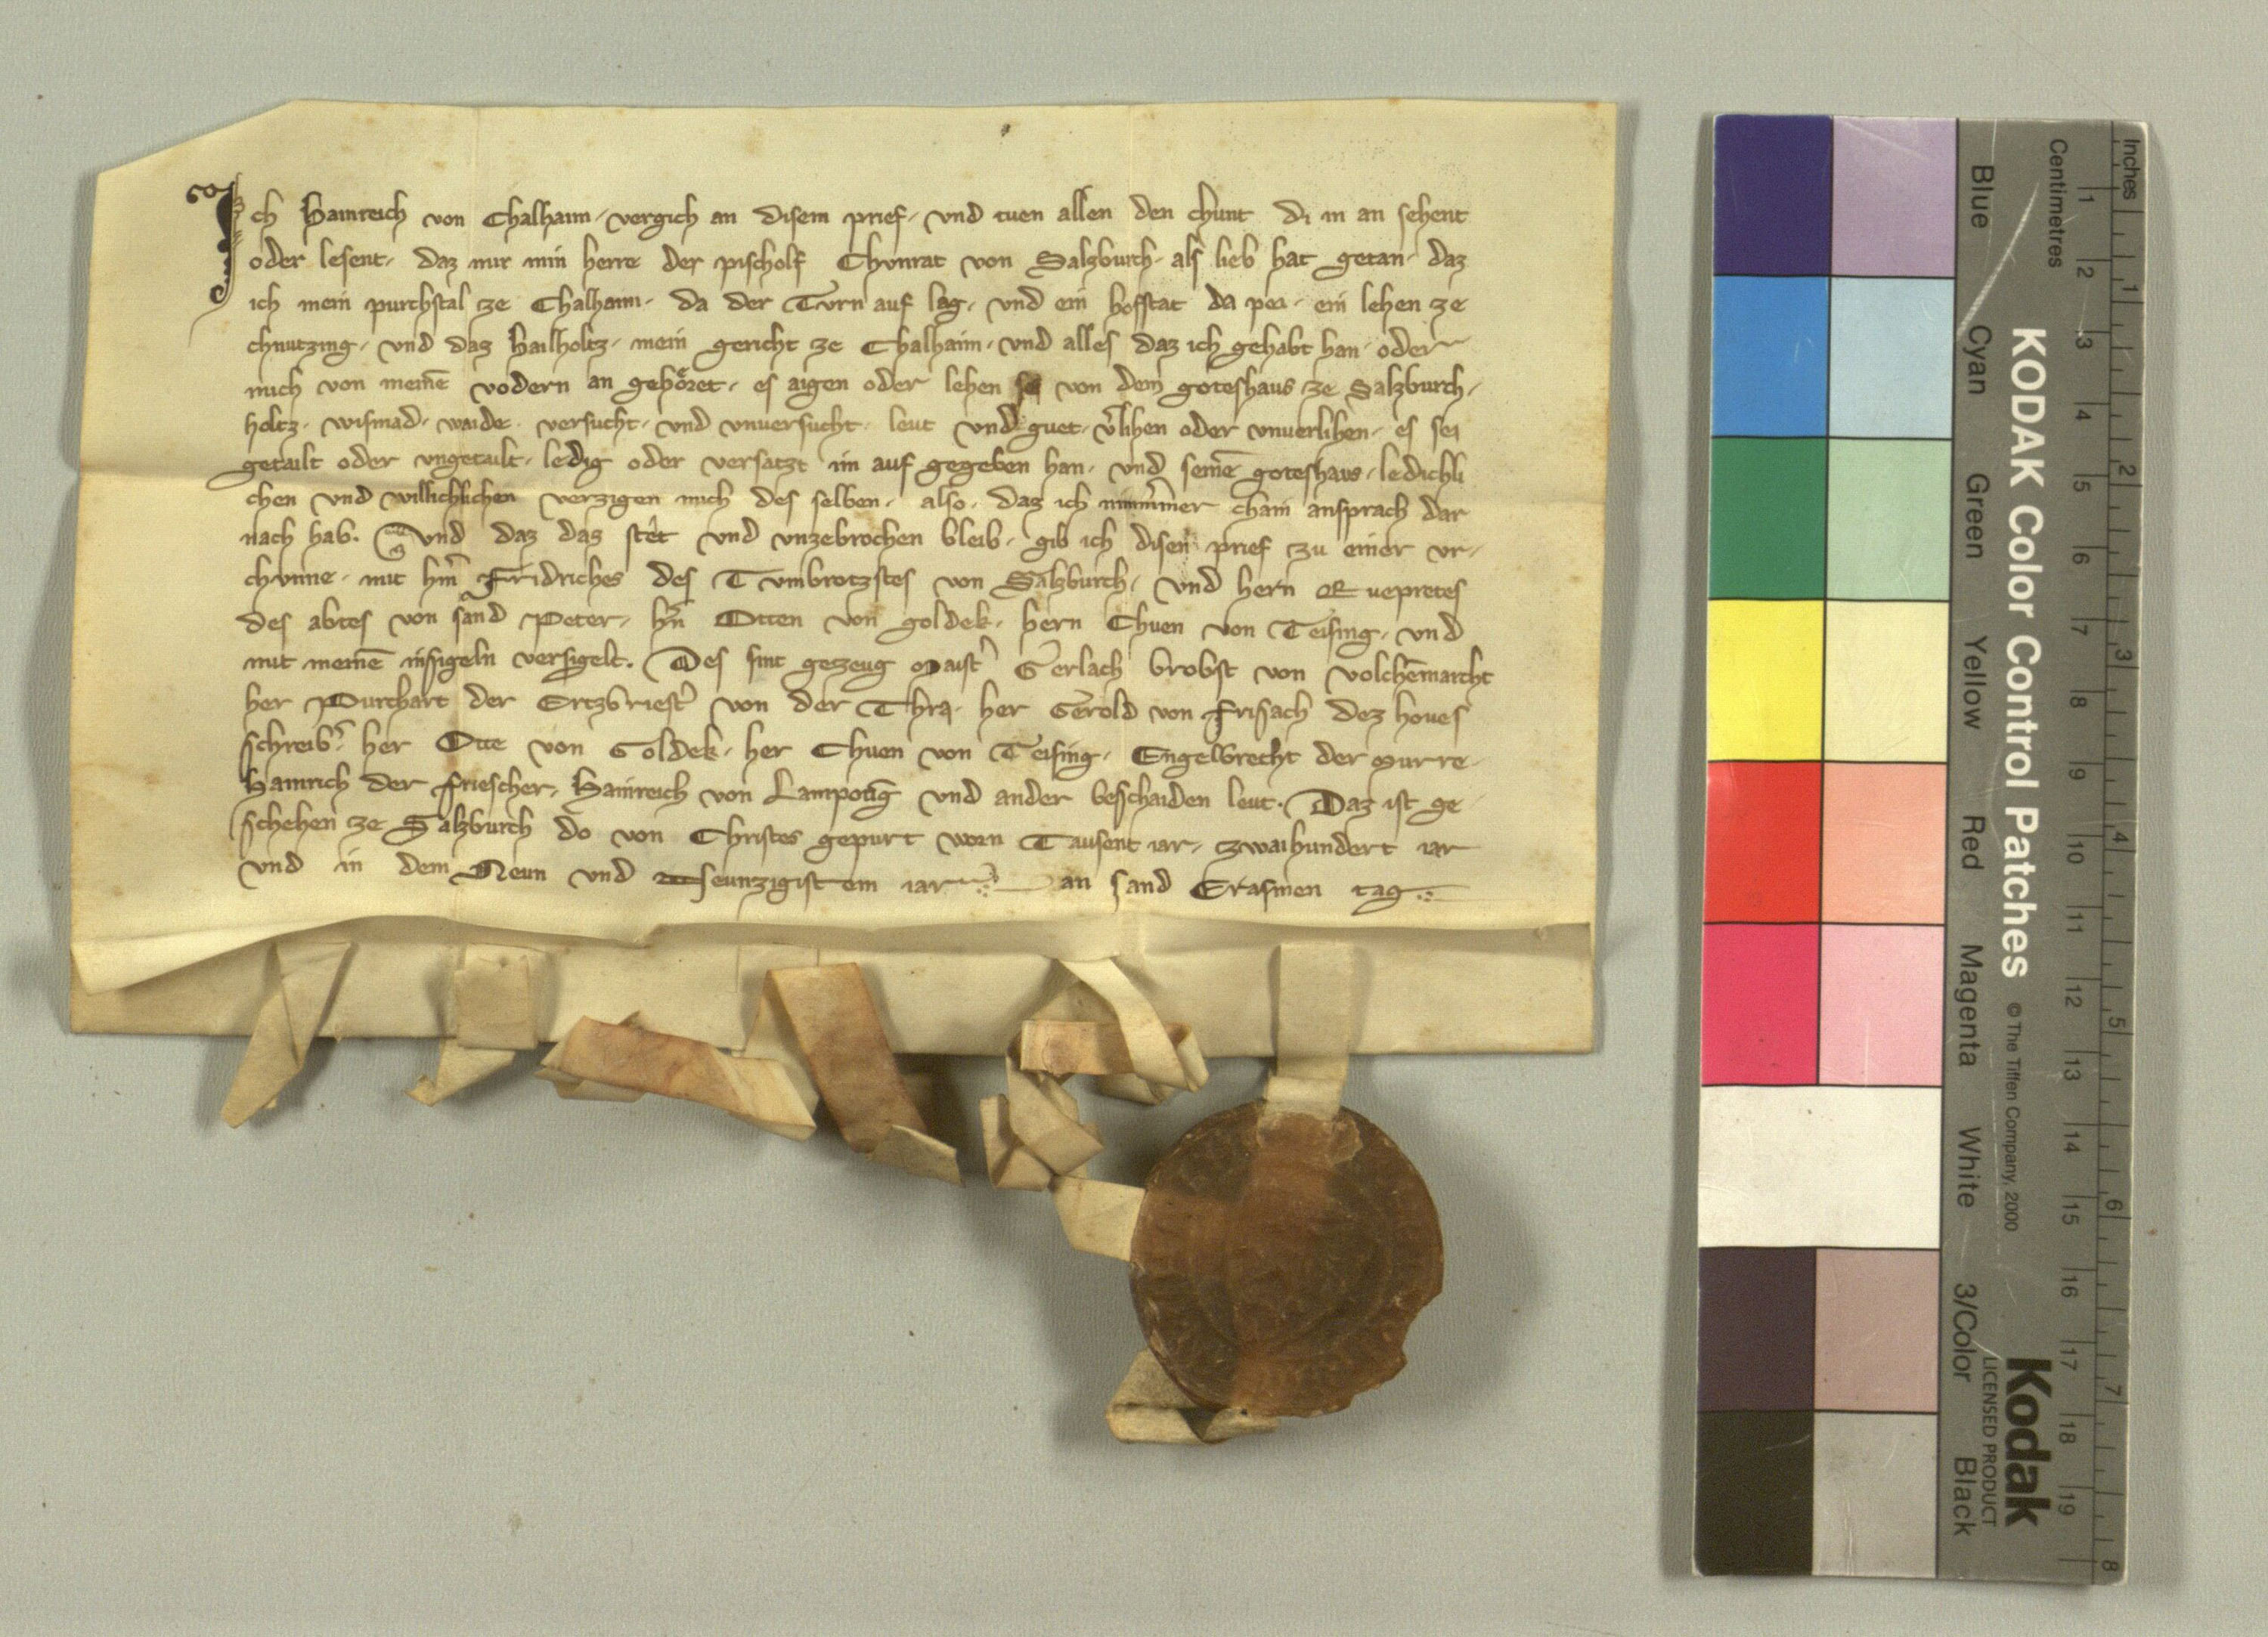 Ich Hainreich von Chalhaim, vergich an disem prief, vnd tuen allen den chunt di in an sehent
oder lesent, daz mir min herre der pischolf Chvnrat von Salzburch, als lieb hat getan, daz
ich mein purchstal ze Chalhaim, da der Tvrn auf lag, vnd ein hofstat da pei, ein lehen ze
chnutzing, vnd daz hailholtz, mein gericht ze Chalhaim, vnd alles daz ich gehabt han oder
mich von meinē vodern an gehöret, es aigen oder lehen sei von dem goteshaus ze Salzburch,
holtz, wismad, waide, versucht, vnd vnuersucht, leut vnd guet, v̾lihen oder vnuerlihen, es sei
getailt oder vngetailt, ledig oder versatzt im auf gegeben han, vnd seinē goteshaus, ledichli
chen vnd willichlichen verzigen mich des selben, also, daz ich nimmer chain ansprach dar
nach hab. Vnd daz daz stet vnd vnzebrochen bleib, gib ich disen prief zu einer vr,
chvnne, mit h̾n Fridriches des Tvmbrotzstes von Salzburch, vnd hern Ruepretes
des abtes von sand Peter, h̾n Otten von goldek, hern Chuen von Teising, vnd
mit meinē insigeln versigelt. Des sint gezeug Maist̾ Gerlach brobst von volchēmarcht
her Purchart der Ertzbriest̾ von der Chra, her Gerold von Frisach dez houes
schreib̾, her Otte von Goldek, her Chuen von Teising, Engelbrecht der Murre,
Hainrich der Friescher, Hainreich von Lampotīg vnd ander beschaiden leut. Daz ist ge
schehen ze Salzburch do von Christes gepurt worn Tausent iar, zwaihundert iar
vnd in dem Neun vnd neunzigistem iar an sand Erasmen tag
KODAK Color Control Patches © The Tiffen Company, 2000 Kodak
LICENSED PRODUCT
Inches 1 2 3 4 5 6 7 8
Centimetres 1 2 3 4 5 6 7 8 9 10 11 12 13 14 15 16 17 18 19
Blue Cyan Green Yellow Red Magenta White 3/Color Black